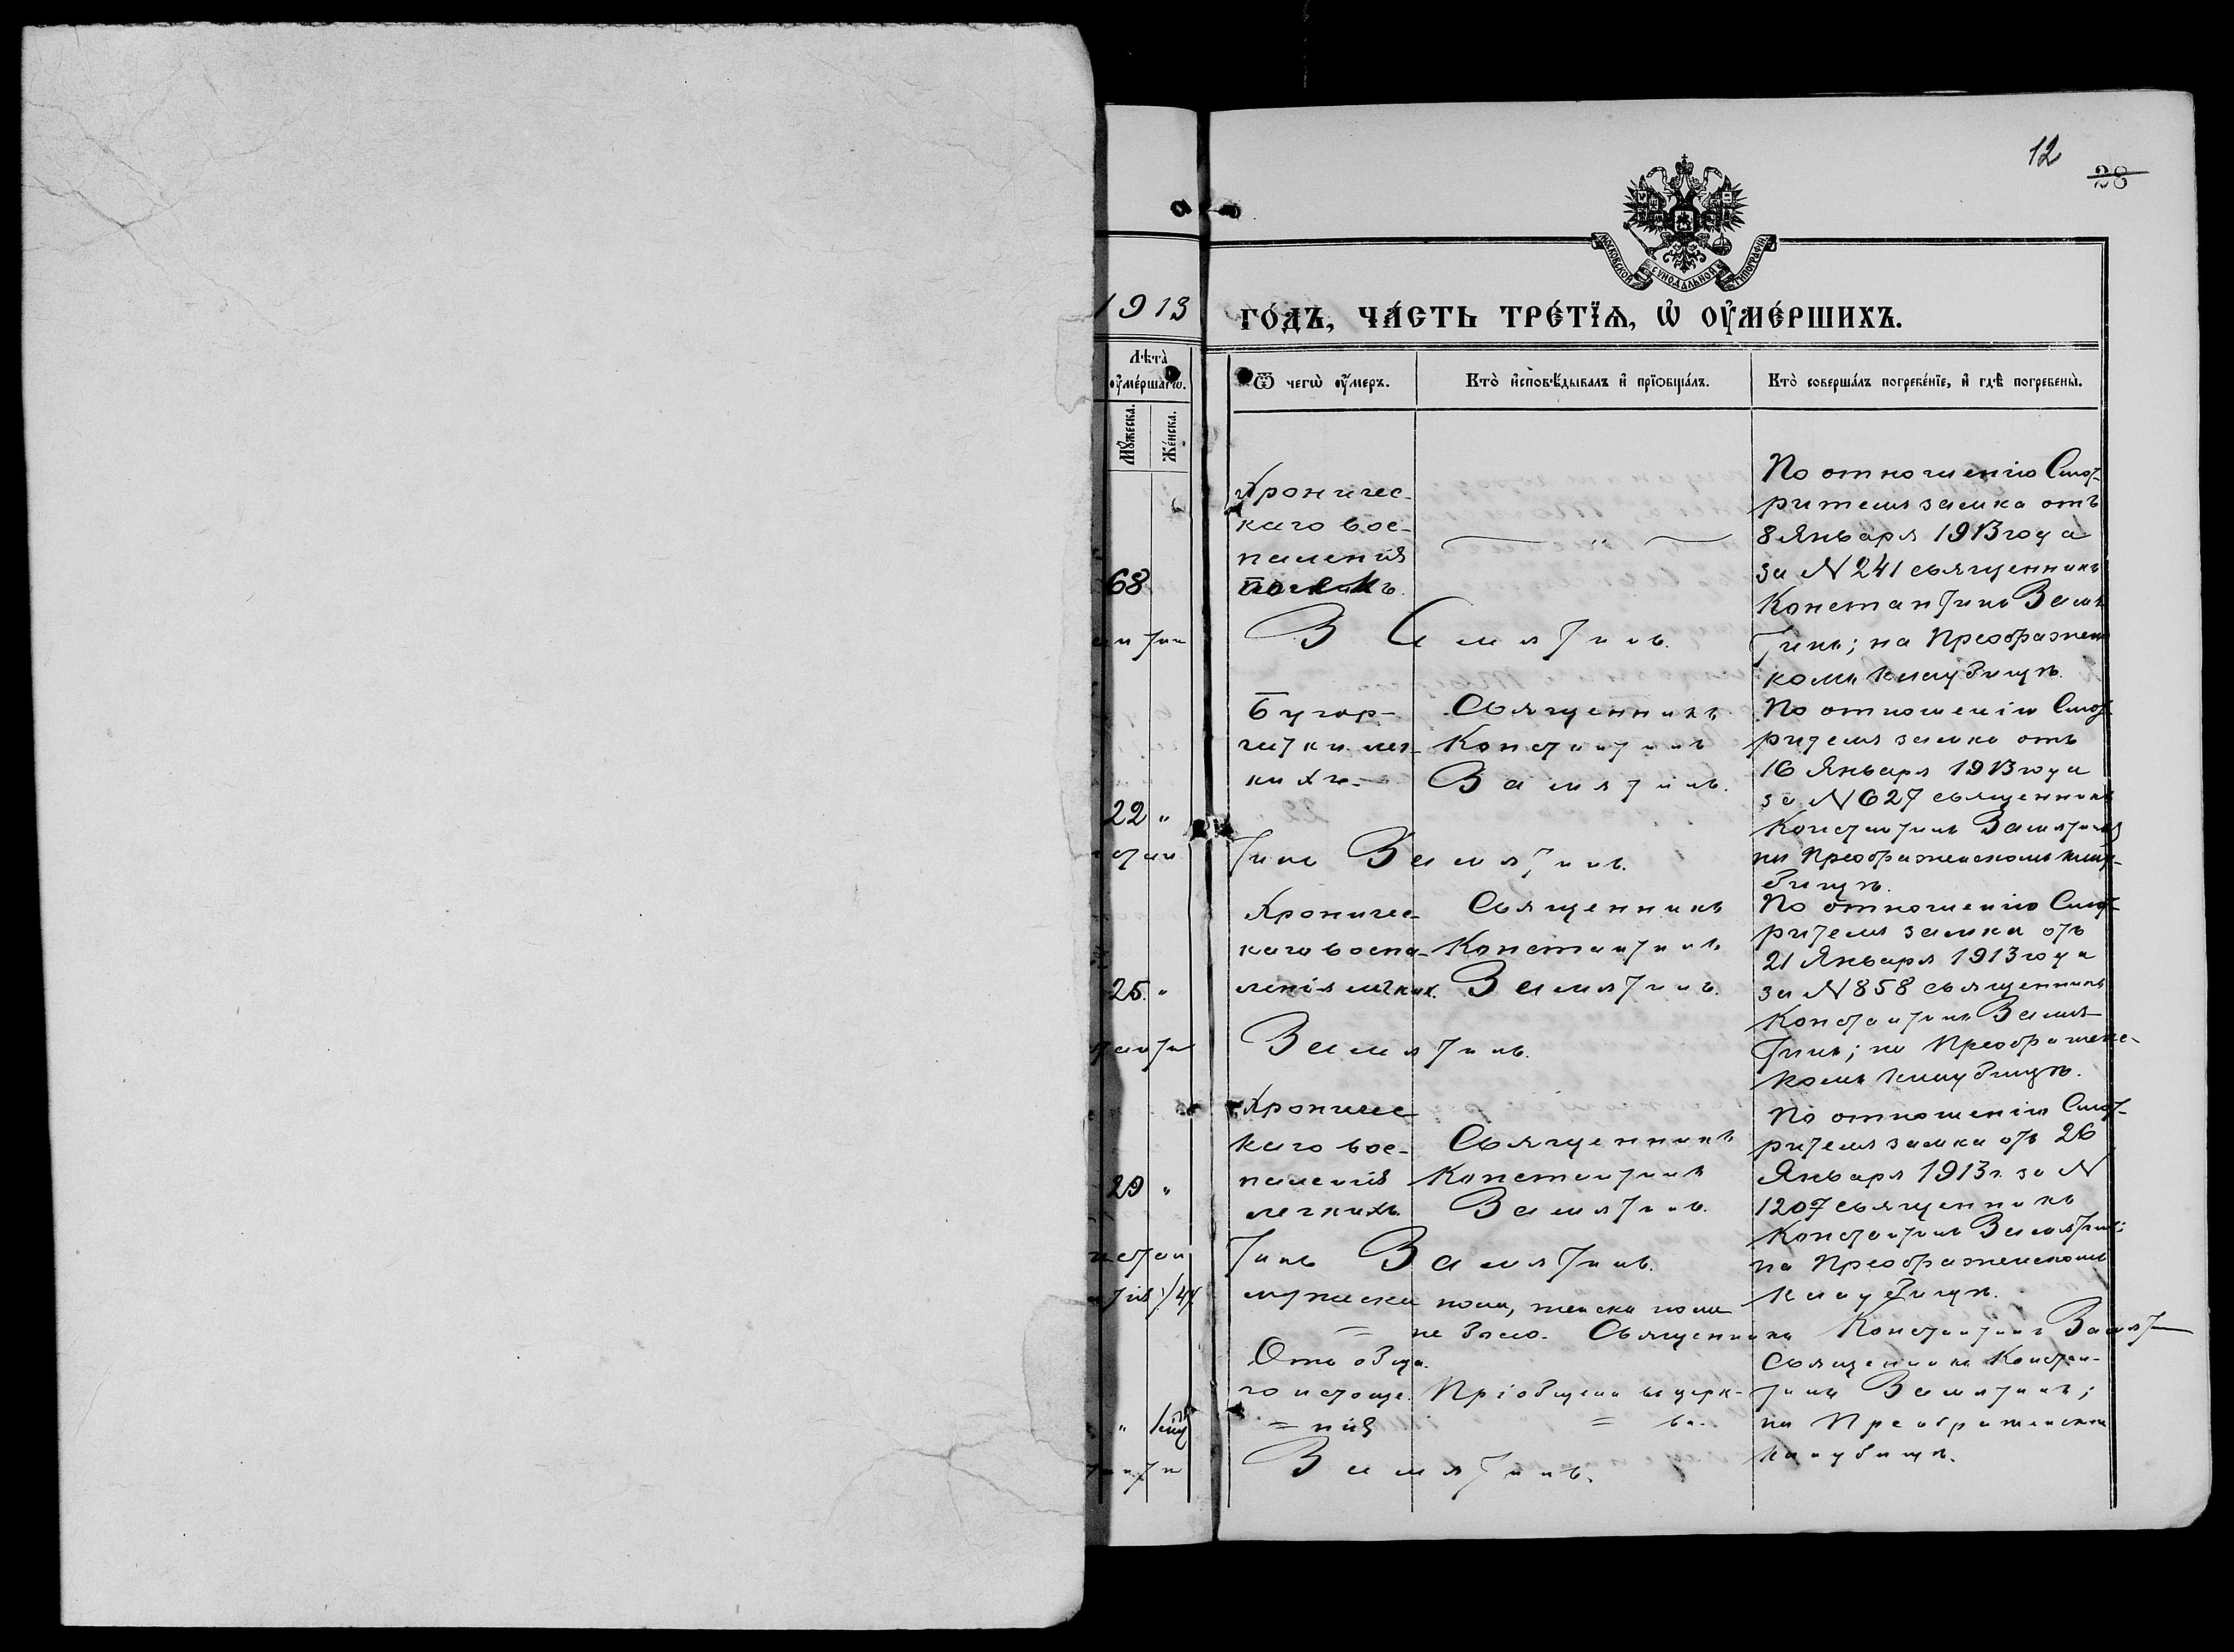 12
28
МОСКОВСКОЙ СѴНОДАЛЬНОЙ ТИПОГРАФІИ
1913 ГО́ДЪ, ЧА́СТЬ ТРЕ́ТЇѦ, Ѡ҆ ОУ҆МЕ́РШИХЪ.
Лѣта̀ оу҆ме́ршагѡ.
Мꙋ́жеска.
Же́нска.
Ѿ чегѡ̀ оу҆́меръ.
Кто̀ и҆сповѣ́дывалъ и҆ прїѻбща́лъ.
Кто̀ соверша́лъ погребе́нїе, и҆ гдѣ̀ погребены̀.
68
Хроничес-
каго вос-
паленія
почекъ.
— " —
По отношенію Смот-
рителя замка отъ
8 Января 1913 года
за N 241 священникъ
Константинъ Замя-
тинъ; на Преображенс-
комъ кладбищѣ.
Замятинъ.
22 "
Бугор-
чатки лег-
кихъ
Священникъ
Константинъ
Замятинъ.
По отношенію Смот-
рителя замка отъ
16 Января 1913 года
за N 627 священникъ
Константинъ Замятинъ
на Преображенскомъ клад-
бищѣ.
тинъ Замятинъ.
25. "
Хроничес-
каго воспа-
ленія легких.
Священникъ
Константинъ
Замятинъ.
По отношенію Смот-
рителя замка отъ
21 Января 1913 года
за N 858 священникъ
Константинъ Замя-
тинъ; на Преображенс-
комъ кладбищѣ.
Замятинъ.
29 "
Хроничес-
каго вос-
паленія
легкихъ.
Священникъ
Константинъ
Замятинъ.
По отношенію Смот-
рителя замка отъ 26
Января 1913 г. за N
1207 священникъ
Константинъ Замятинъ;
на Преображенскомъ
кладбищѣ.
тинъ Замятинъ.
мужеска пола, женска пола
не было. Священникъ Константинъ Замят
"
Отъ обща-
го истоще-
= нія
Пріобщена въ церк-
= ви.
Священникъ Констан-
тинъ Замятинъ;
на Преображенскомъ
кладбищѣ.
Замятинъ.